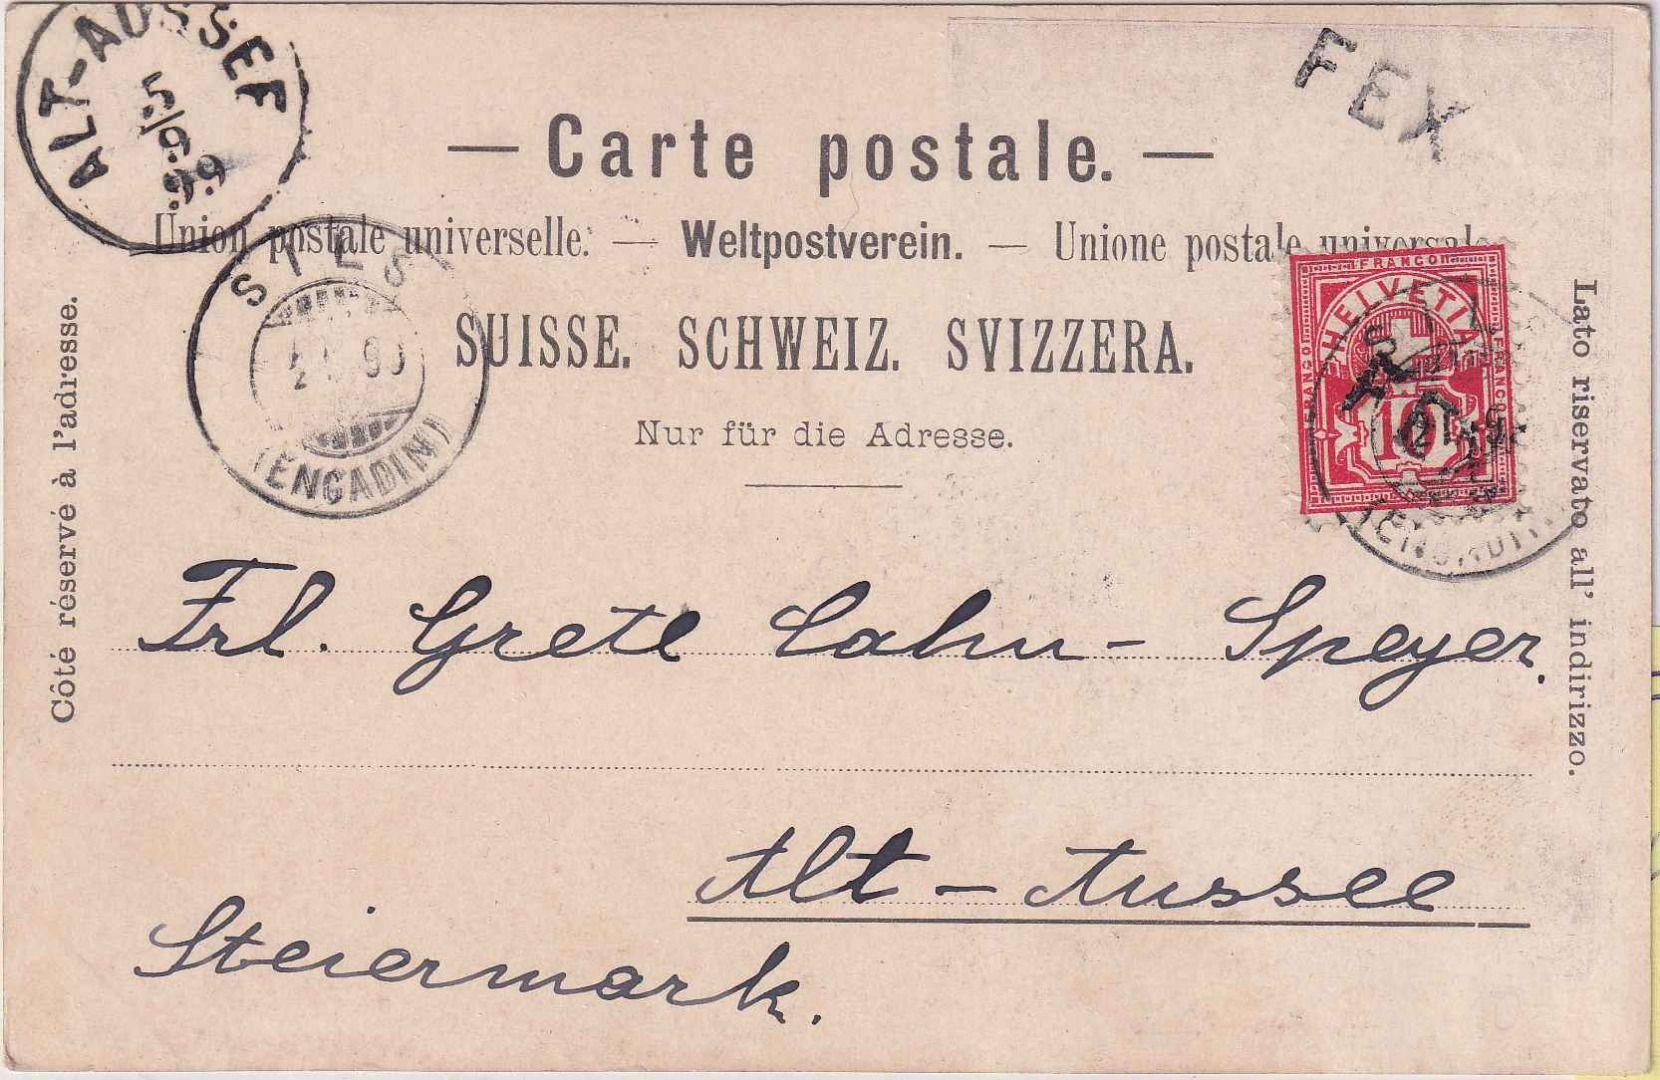 ALT-AUSSEE
FEX
— Carte postale. —
Union postale universelle. — Weltpostverein. — Unione postale universale
SILS
(ENGADIN)
SUISSE. SCHWEIZ. SVIZZERA.
Nur für die Adresse.
Côté réservé à l'adresse.
Lato riservato all' indirizzo.
FRANCO
HELVETIA
FRANCO
FRANCO
10
SILS
(ENGADIN)
Frl. Grete Cahn-Speyer.
Alt-Aussee
Steiermark.